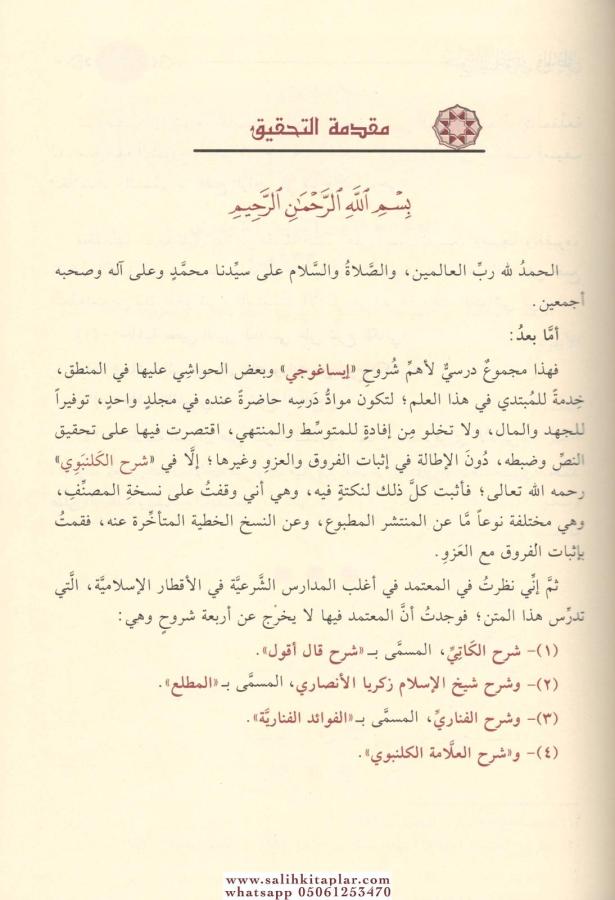 مقدمة التحقيق
بِسْمِ ٱللَّهِ ٱلرَّحْمَٰنِ ٱلرَّحِيمِ
الحمدُ لله ربِّ العالمين، والصَّلاةُ والسَّلام على سيِّدنا محمَّدٍ وعلى آله وصحبه
أجمعين.
أمَّا بعدُ:
فهذا مجموعٌ درسيٌّ لأهمِّ شُروحِ «إيساغوجي» وبعض الحواشِي عليها في المنطق،
خِدمةً للمُبتدي في هذا العلم؛ لتكون موادُّ دَرسِه حاضرةً عنده في مجلدٍ واحدٍ، توفيراً
للجهد والمال، ولا تخلو مِن إفادةٍ للمتوسِّط والمنتهي، اقتصرت فيها على تحقيق
النصِّ وضبطه، دُونَ الإطالة في إثبات الفروق والعزو وغيرها؛ إلَّا في «شرح الكَلنبَوِي»
رحمه الله تعالى؛ فأثبت كلَّ ذلك لنكتةٍ فيه، وهي أني وقفتُ على نسخةِ المصنِّفِ،
وهي مختلفة نوعاً مَّا عن المنتشر المطبوع، وعن النسخ الخطية المتأخِّرة عنه، فقمتُ
بإثبات الفروق مع العَزوِ.
ثمَّ إنِّي نظرتُ في المعتمد في أغلب المدارس الشَّرعيَّة في الأقطار الإسلاميَّة، الَّتي
تدرِّس هذا المتن؛ فوجدتُ أنَّ المعتمد فيها لا يخرُج عن أربعة شروحٍ وهي:
(١)- شرح الكَاتِيِّ، المسمَّى بـ«شرح قال أقول».
(٢)- وشرح شيخ الإسلام زكريا الأنصاري، المسمَّى بـ«المطلع».
(٣)- وشرح الفناريِّ، المسمَّى بـ«الفوائد الفناريَّة».
(٤)- و«شرح العلَّامة الكلنبوي».
www.salihkitaplar.com
whatsapp 05061253470